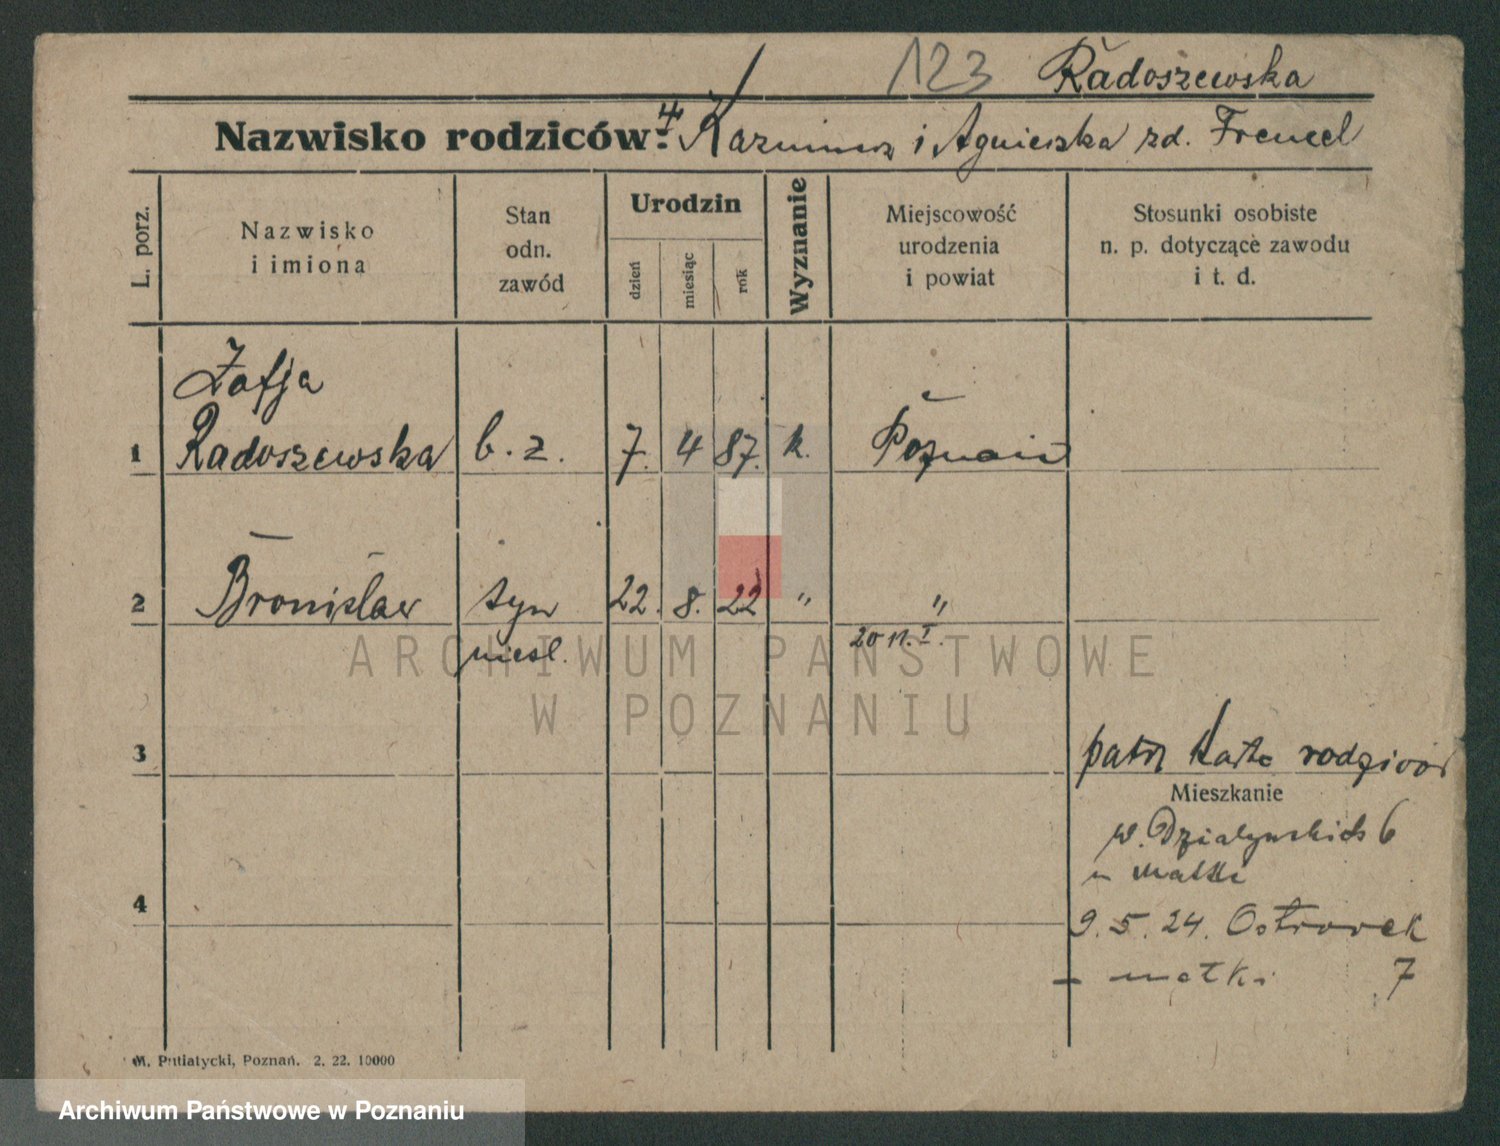 123 Radoszewska
Nazwisko rodziców: Kazimierz i Agnieszka zd. Frencel
L. porz.
Nazwisko
i imiona
Stan
odn.
zawód
Urodzin
dzień
miesiąc
rok
Wyznanie
Miejscowość
urodzenia
i powiat
Stosunki osobiste
n. p. dotyczące zawodu
i t. d.
Zofja
1 Radoszewska b. z. 7. 4 87. k. Poznań
2 Bronisław syn 22. 8. 22 " "
niesl.
ARCHIWUM PAŃSTWOWE
W POZNANIU
3 patrz Karta rodziców
Mieszkanie
w. Działyńskich 6
u matki
4
9. 5. 24. Ostrówek
– matki 7
M. Putiatycki, Poznań. 2. 22. 10000
Archiwum Państwowe w Poznaniu